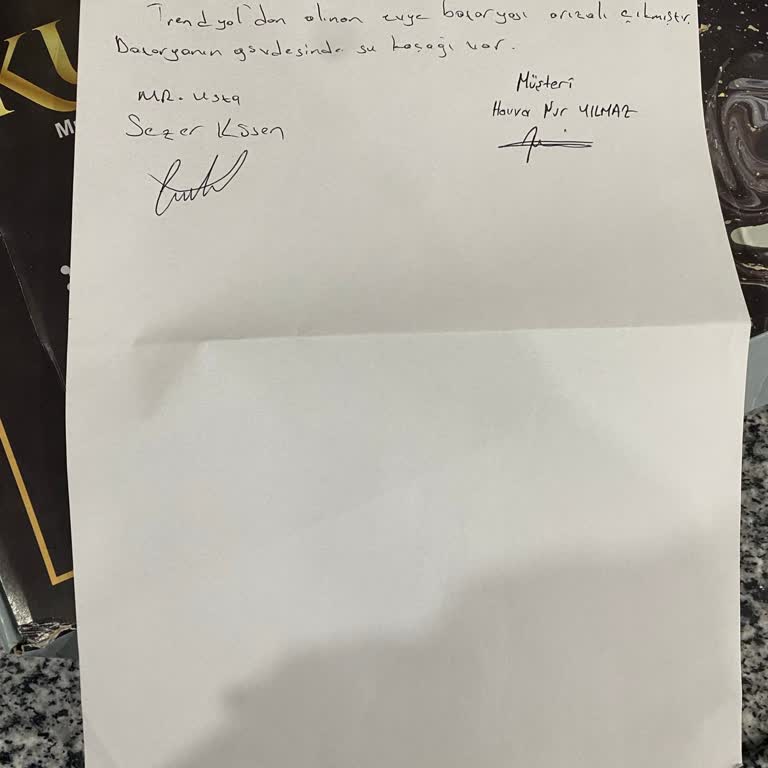 Trendyol'dan alınan evye bataryası arızalı çıkmıştır.
Bataryanın gövdesinde su kaçağı var.
MR. Usta
Sezer Kösen
Müşteri
Havva Nur YILMAZ
KU
M